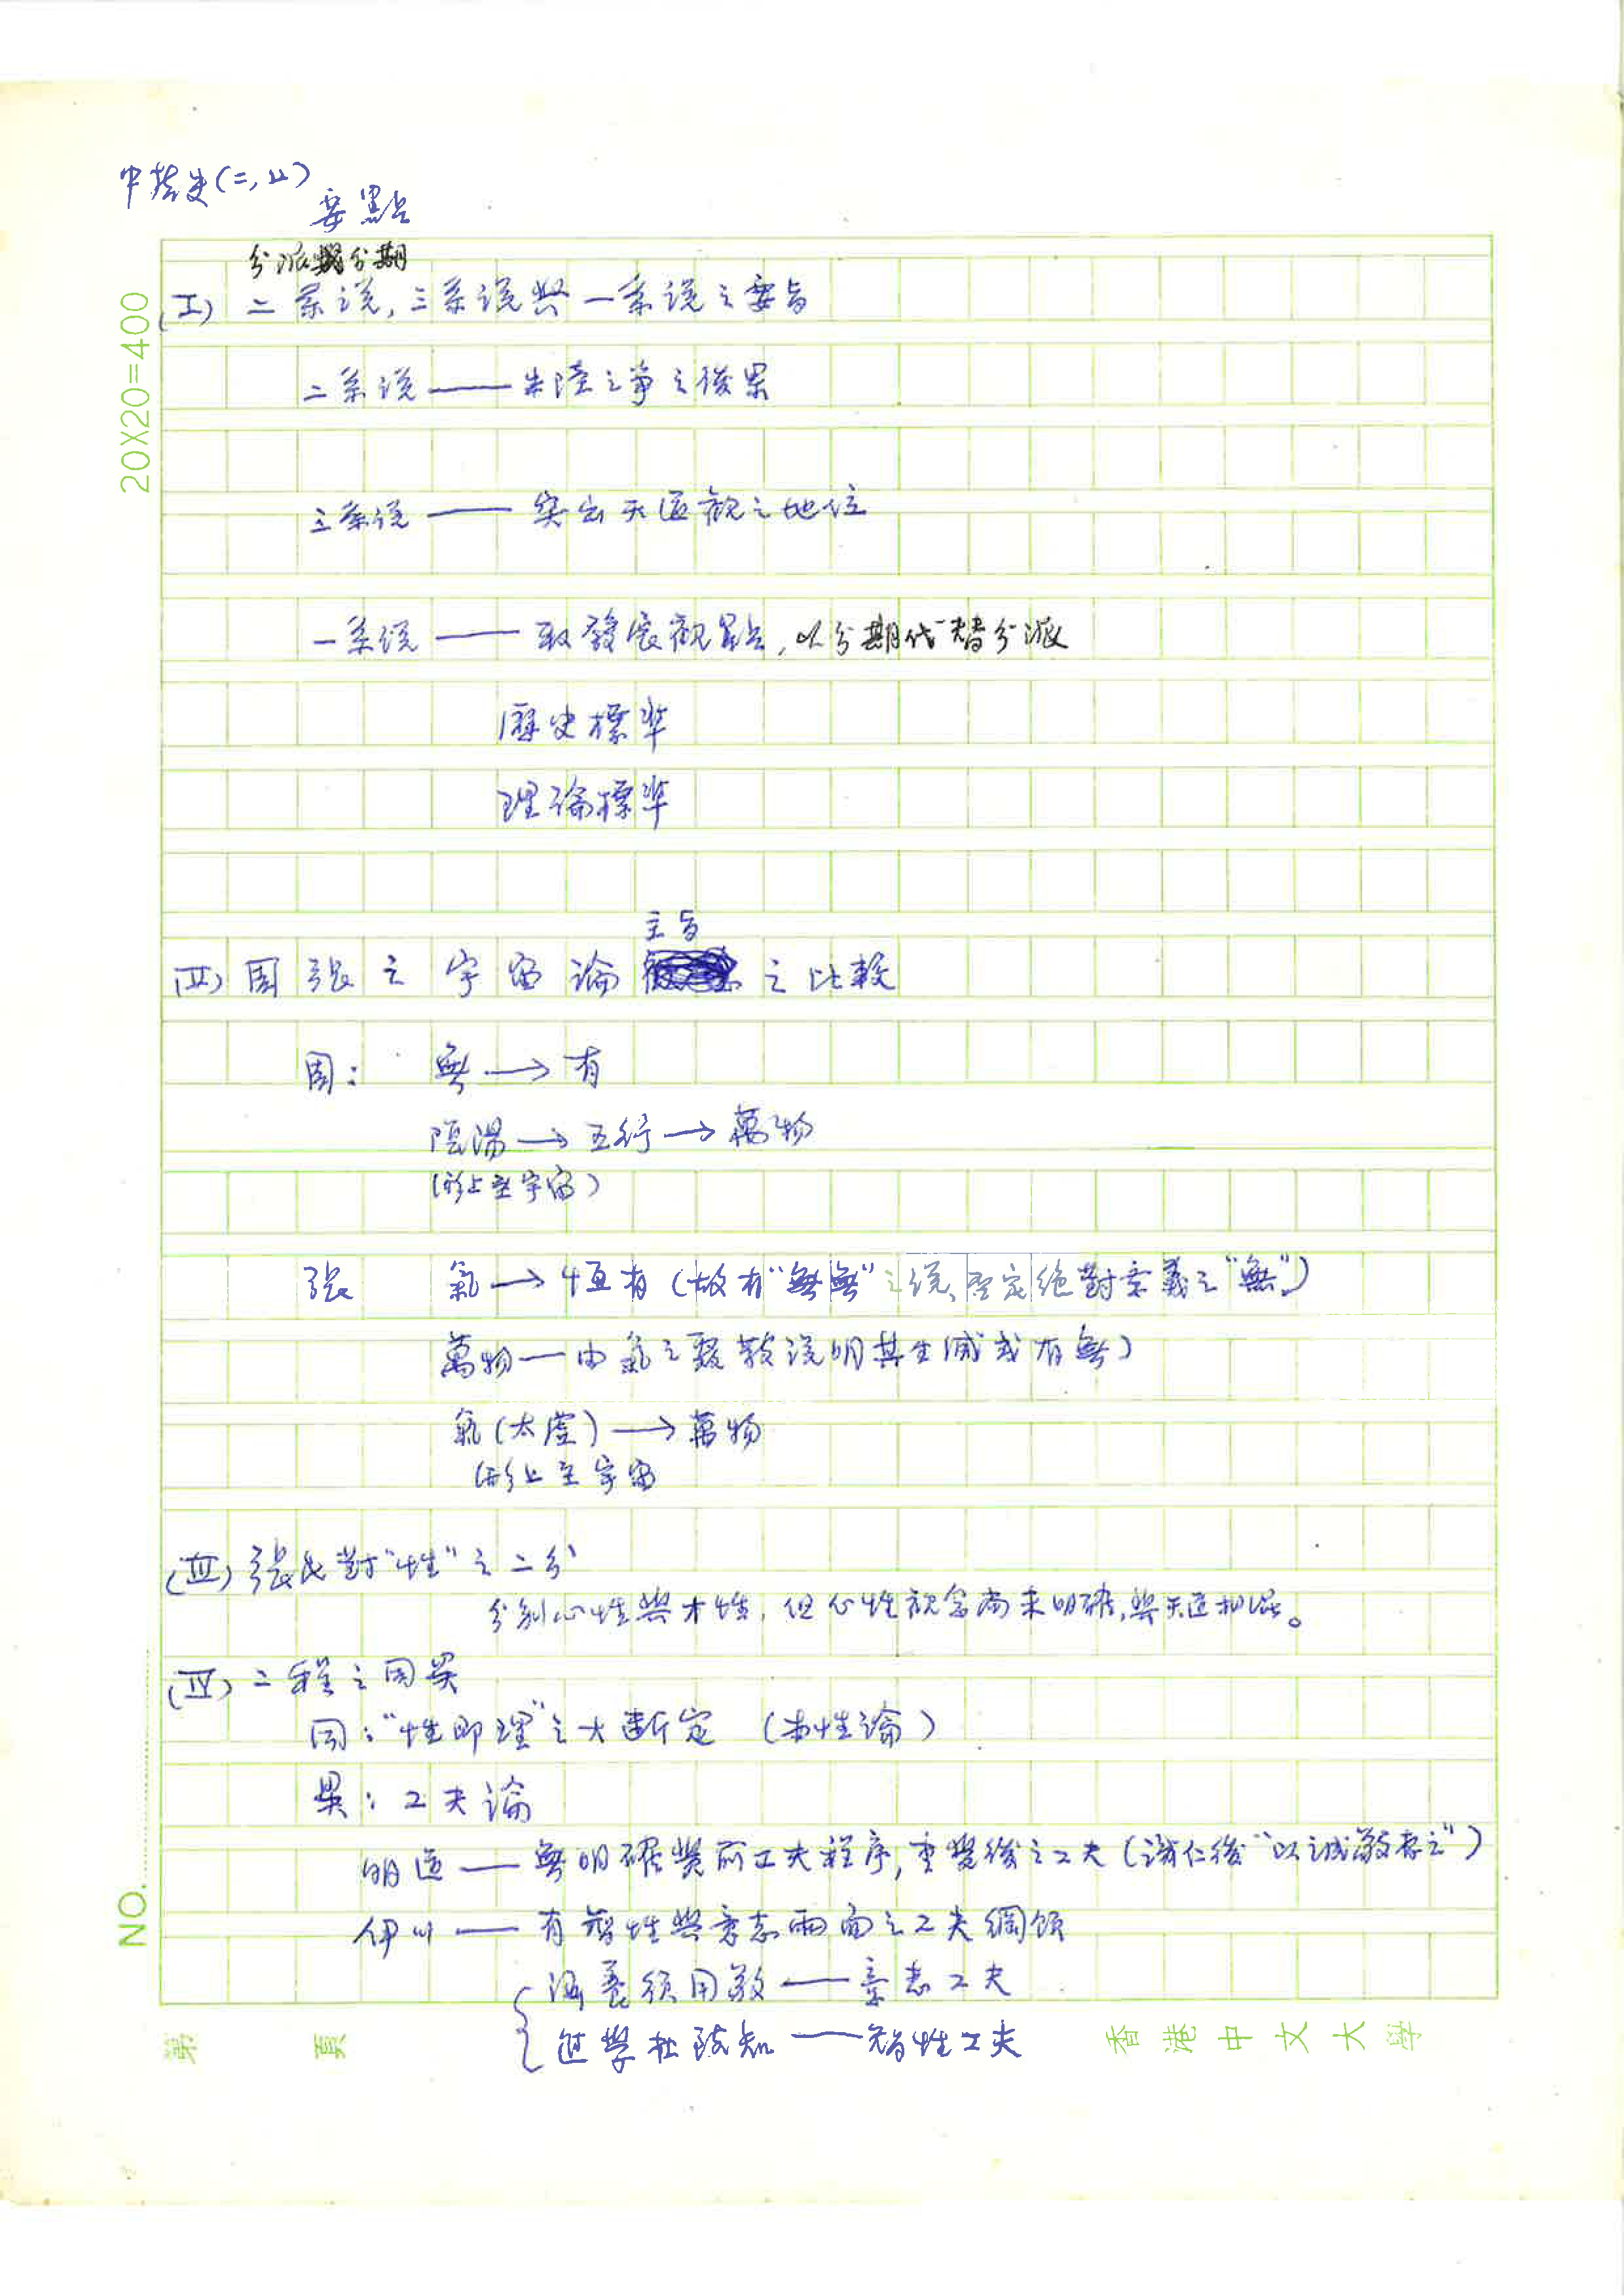 中哲史(二,上)
要點
分派與分期
(I) 二系說,三系說與一系說之要旨
二系說——朱陸之爭之後果
三系說——突出天道觀之地位
一系說——取發展觀點,以分期代替分派
歷史標準
理論標準
主旨
(II) 周張之宇宙論之比較
周: 無→有
陰陽→五行→萬物
(形上至宇宙)
張 氣→恒有(故有“無無”之說、否定絕對意義之“無”)
萬物—由氣之聚散說明其生滅或有無)
氣(太虛)→萬物
(形上至宇宙
(III) 張氏對“性”之二分
分別心性與才性,但心性觀念尚未明確,與天道相混。
(IV) 二程之同異
同:“性即理”之大斷定 (本性論)
異:工夫論
明道——無明確覺前工夫程序,重覺後之工夫(識仁後“以誠敬存之”)
伊川——有智性與意志兩面之工夫綱領
涵養須用敬——意志工夫
進學在致知——智性工夫
20X20=400
NO.
第 頁
香港中文大學